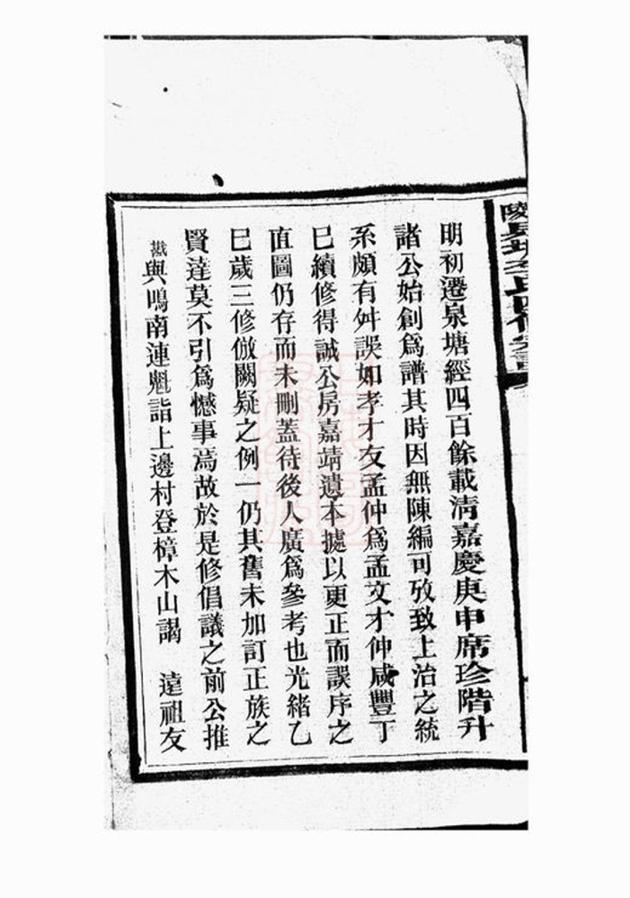 明初遷泉塘經四百餘載淸嘉慶庚申席珍階升
諸公始創爲譜其時因無陳編可攷致上治之統
系頗有舛誤如孝才友孟仲爲孟文才仲咸豐丁
巳續修得誠公房嘉靖遺本據以更正而誤序之
直圖仍存而未刪蓋待後人廣爲參考也光緒乙
巳歲三修倣闕疑之例一仍其舊未加訂正族之
賢達莫不引爲憾事焉故於是修倡議之前公推
與鳴南連魁詣上邊村登樟木山謁 達祖友